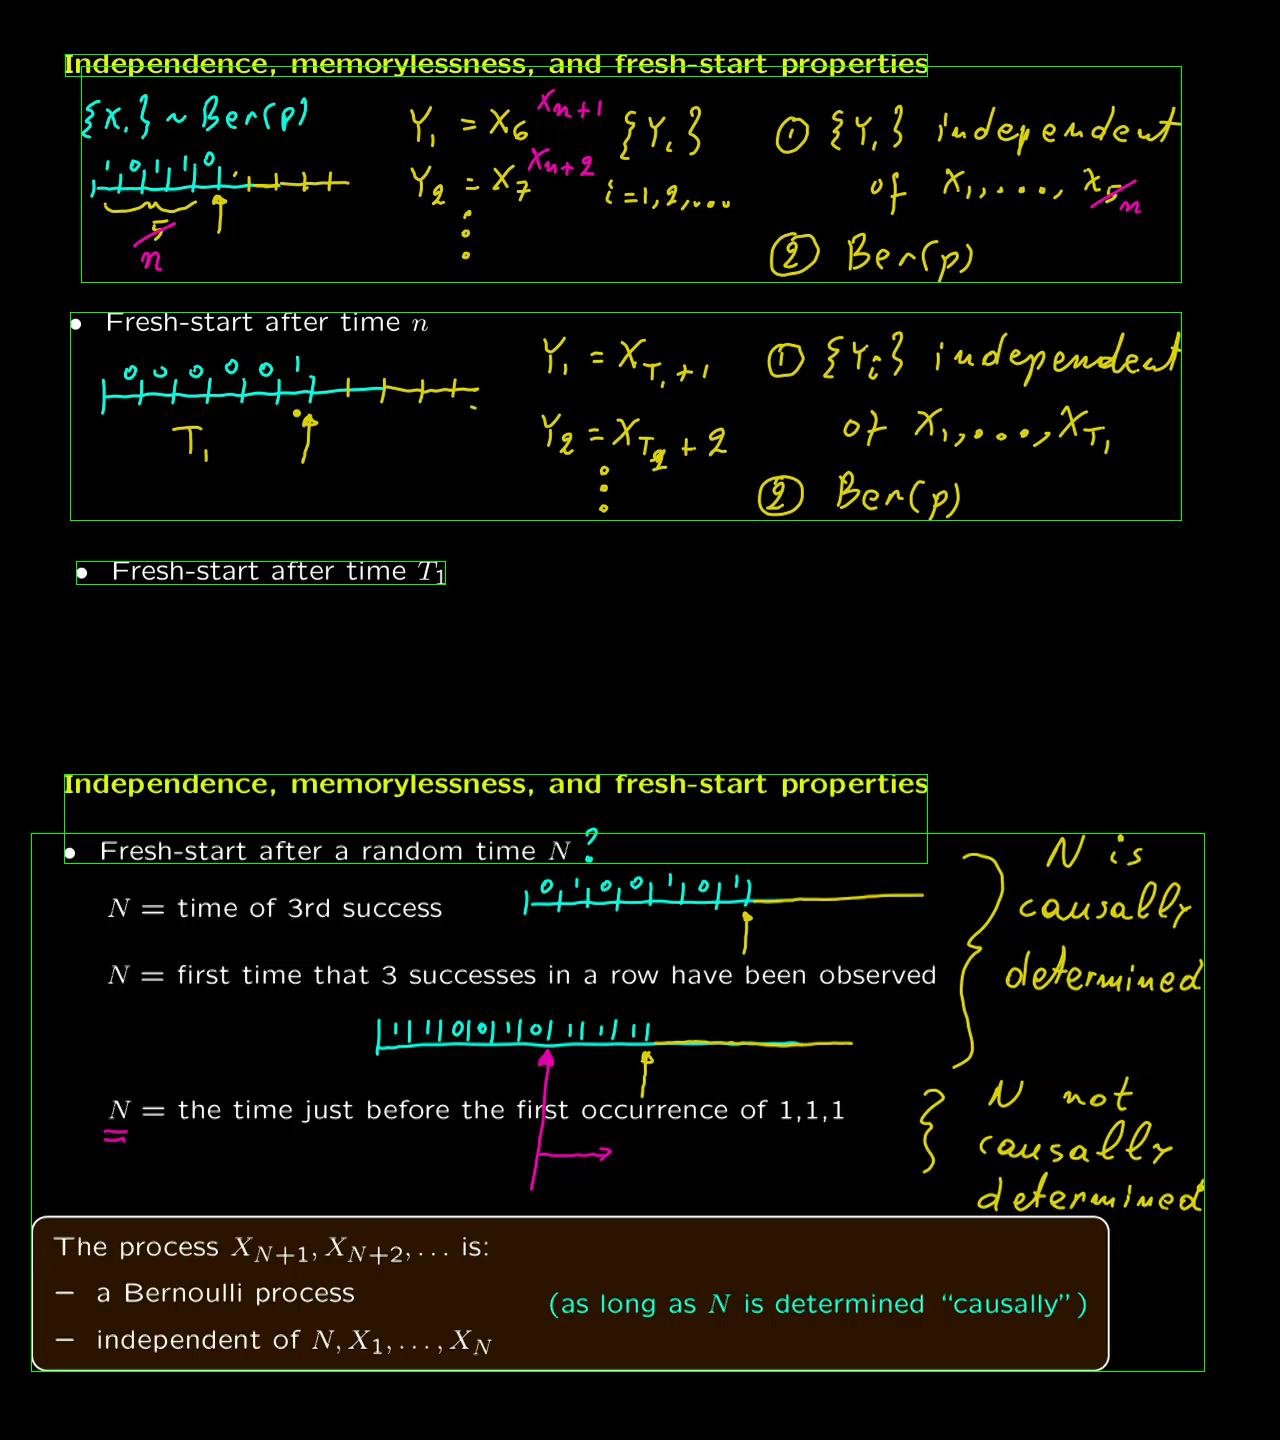 Independence, memorylessness, and fresh-start properties
{X.} ~ Ber(p)
1 0 1 1 0
5 n
Y₁ = X₆ Xₙ₊₁
Y₂ = X₇ Xₙ₊₂
{Yᵢ}
i = 1, 2, ...
① {Yᵢ} independent
of X₁, ..., X₅ n
② Ber(p)
• Fresh-start after time n
0 0 0 0 0 1
T₁
Y₁ = X_{T₁+1}
Y₂ = X_{T₂+2}
① {Yᵢ} independent
of X₁, ..., X_{T₁}
② Ber(p)
• Fresh-start after time T₁
Independence, memorylessness, and fresh-start properties
• Fresh-start after a random time N ?
N = time of 3rd success
0 1 0 0 1 0 1
N = first time that 3 successes in a row have been observed
1 1 0 0 1 0 1 1 1
N = the time just before the first occurrence of 1,1,1
N is
causally
determined
N not
causally
determined
The process X_{N+1}, X_{N+2}, ... is:
– a Bernoulli process
– independent of N, X₁, ..., X_N
(as long as N is determined “causally”)